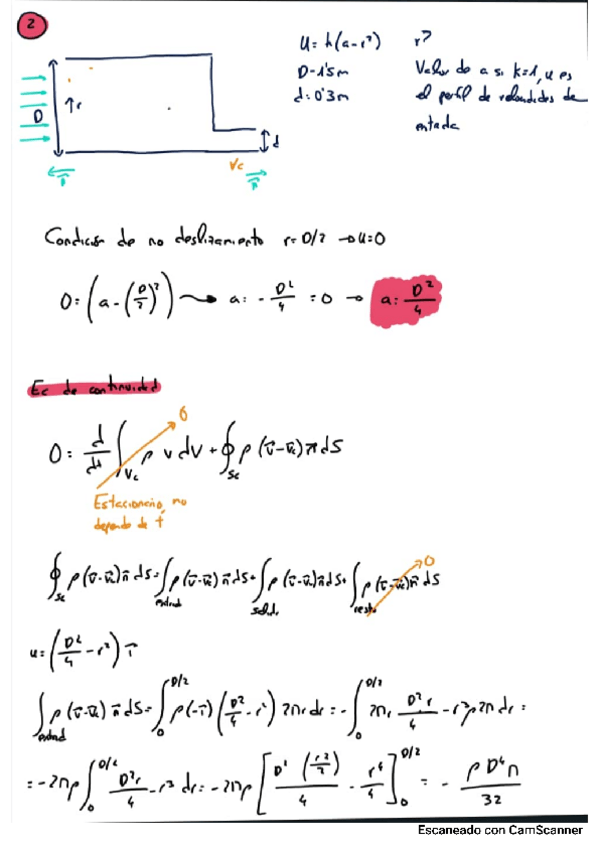 2
U = k(a-r²) r?
D = 1'5m Valor de a si k=1, u es
d: 0'3m el perfil de velocidades de
entrada
D r d
n̄ Vc n̄
Condición de no deslizamiento r= D/2 → u=0
0 = (a - (D/2)²) → a: - D²/4 = 0 → a: D²/4
Ec de continuidad
0 = d/dt ∫Vc ρ v dV + ∮Sc ρ (v̄-v̄c) n̄ dS
0
Estacionario, no
depende de t
∮Sc ρ(v̄-v̄c) n̄ dS = ∫entrad ρ(v̄-v̄c) n̄ dS + ∫salida ρ(v̄-v̄c) n̄ dS + ∫resto ρ(v̄-v̄c) n̄ dS 0
u = (D²/4 - r²) i
∫entrad ρ(v̄-v̄c) n̄ dS = ∫0^D/2 ρ(-i) (D²/4 - r²) 2πr dr = - ∫0^D/2 2πr D²r/4 - r³ρ2π dr =
= -2πρ ∫0^D/2 D²r/4 - r³ dr = -2πρ [D² (r²/2)/4 - r⁴/4]0^D/2 = - ρD⁴π/32
Escaneado con CamScanner